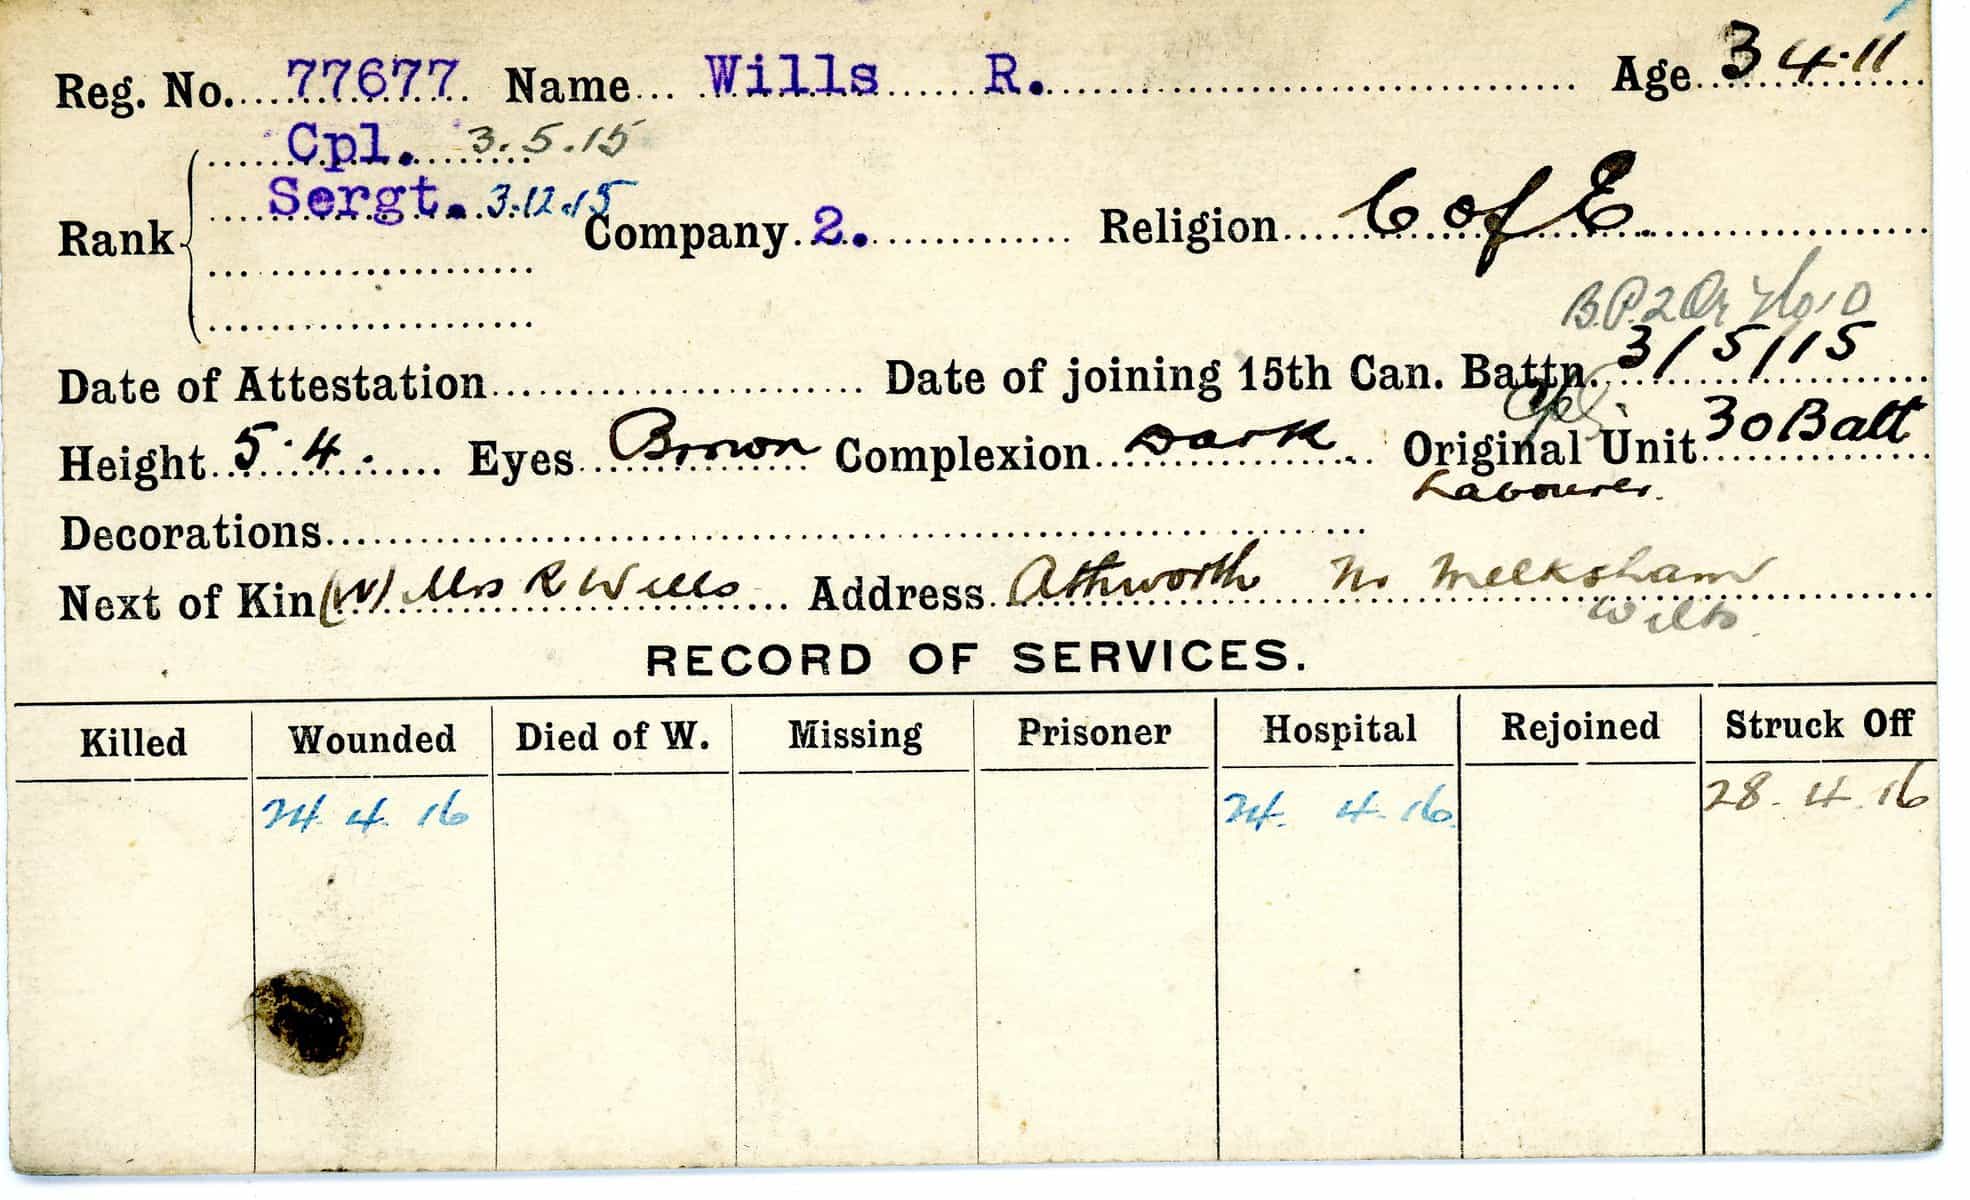 Reg. No. 77677 Name Wills R. Age 34.11
Cpl. 3.5.15
Sergt. 3.12.15
Rank Company 2. Religion C of E.
B.P. 2
Date of Attestation Date of joining 15th Can. Battn. 3/5/15
Height 5.4. Eyes Brown Complexion Dark Original Unit 30 Batt
Labourer.
Decorations
Next of Kin (W) Mrs R Wills Address Athworth Nr Melksham
Wilts
RECORD OF SERVICES.
Killed Wounded Died of W. Missing Prisoner Hospital Rejoined Struck Off
24. 4. 16 24. 4. 16 28. 4. 16